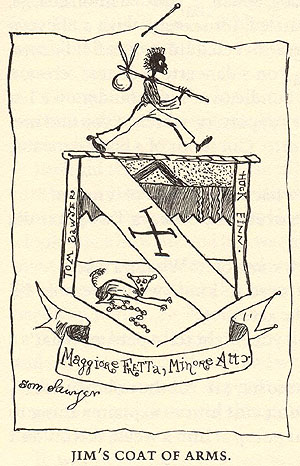 TOM SAWYERS
HUCK FINN.
Maggiore Fretta, Minore Atto
Tom Sawyer
JIM'S COAT OF ARMS.